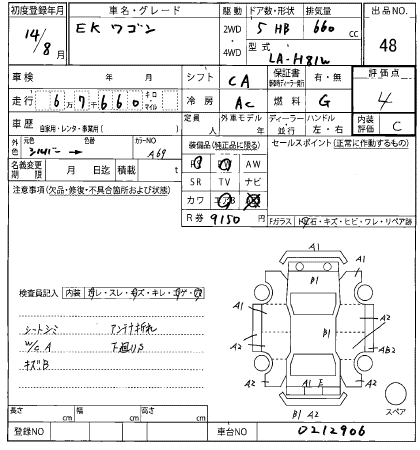 初度登録年月 車名・グレード 駆動 ドア数・形状 排気量 出品NO.
14/8月 EK ワゴン 2WD・4WD 5 HB 660 cc 48
型式 LA-H81W
車検 年 月 シフト CA 保証書 有・無 評価点
走行 6万7千660 キロ・マイル 冷房 AC 燃料 G 4
車歴 自家用・レンタ・事業用( ) 定員 人 外車モデル 年 ディーラー・並行 ハンドル 左・右 内装評価 C
外色 元色 シルバー → 色替 カラーNO A69
装備品(純正品に限る) セールスポイント(正常に作動するもの)
名義変更期限 月 日迄 積載 t
PS PW AW
SR TV ナビ
カワ エアB
R券 9150 円
注意事項(欠品・修復・不具合箇所および状態)
Fガラス 飛石・キズ・ヒビ・ワレ・リペア跡
検査員記入 内装 ヨゴレ・スレ・キズ・キレ・コゲ・穴
シートシミ アンテナ折れ
W/C A 下廻りS
キズB
A1
B1
A1
A1
A2
A2
B1
A2
A2
AB2
A2
A2
A1 E
B1 A2
スペア
長さ cm 幅 cm 高さ cm
登録NO 車台NO 0212906